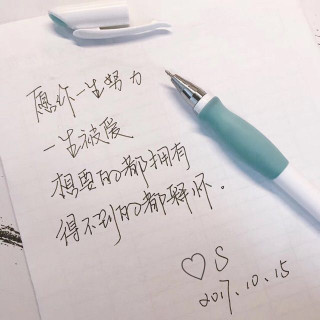 愿你一生努力
一生被爱
想要的都拥有
得不到的都释怀。
♡S
2017.10.15